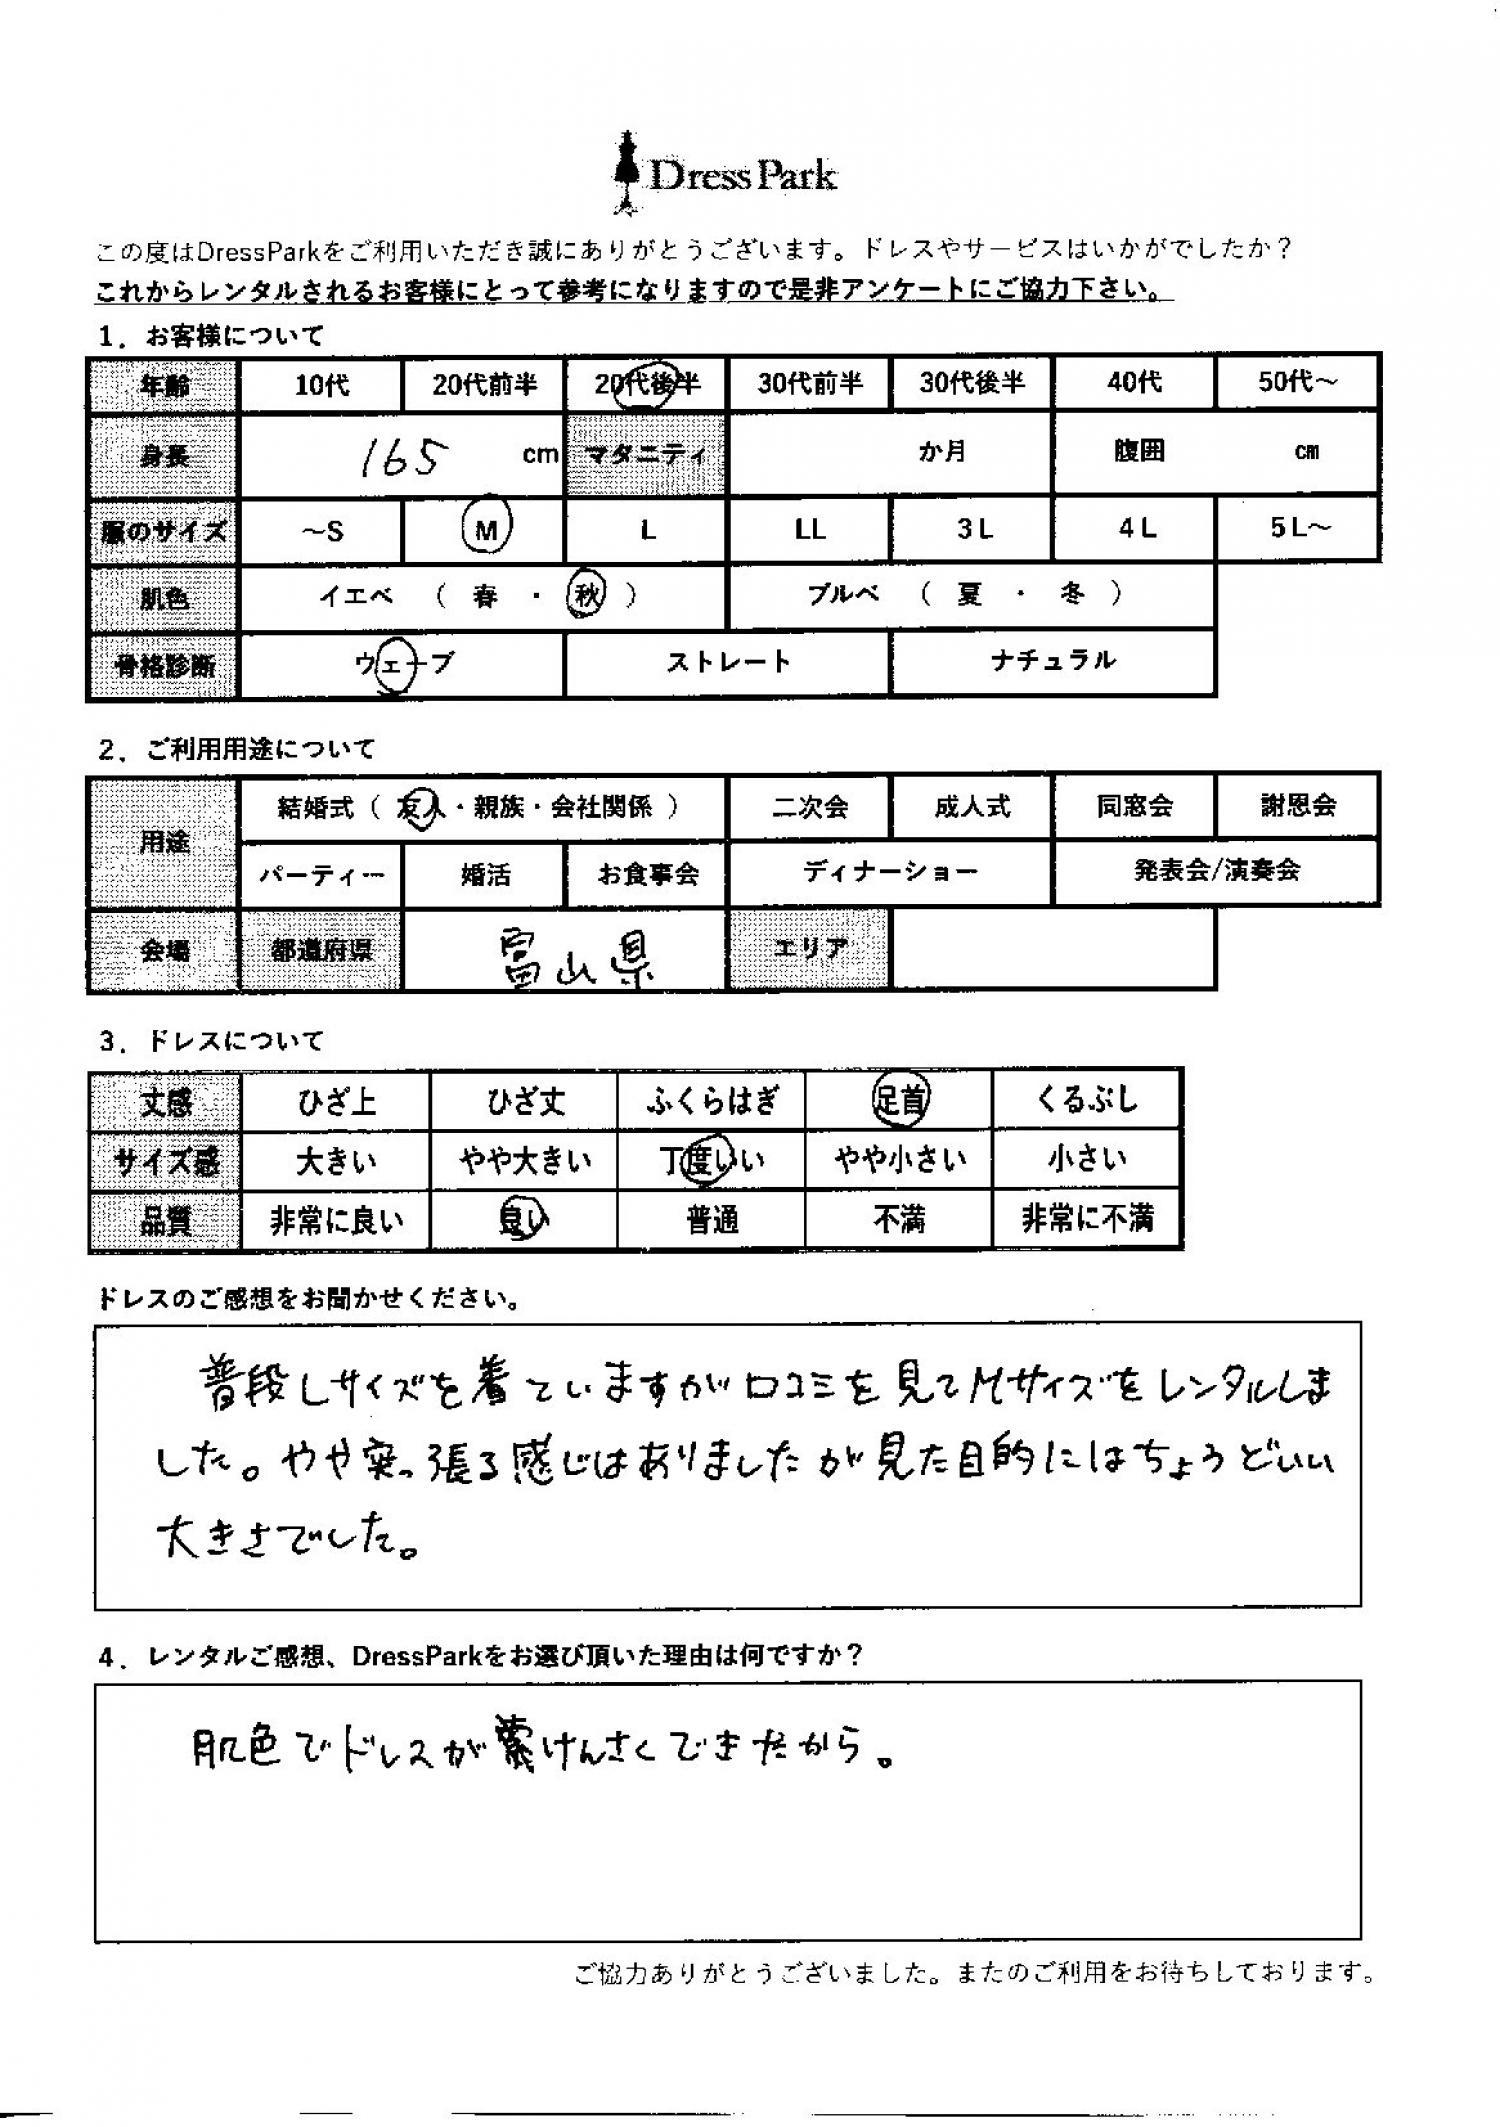 Dress Park
この度はDressParkをご利用いただき誠にありがとうございます。ドレスやサービスはいかがでしたか？
これからレンタルされるお客様にとって参考になりますので是非アンケートにご協力下さい。
1．お客様について
年齢 10代 20代前半 20代後半 30代前半 30代後半 40代 50代～
身長 165 cm マタニティ か月 腹囲 cm
服のサイズ ～S M L LL 3L 4L 5L～
肌色 イエベ （ 春 ・ 秋 ） ブルベ （ 夏 ・ 冬 ）
骨格診断 ウェーブ ストレート ナチュラル
2．ご利用用途について
用途 結婚式（ 友人・親族・会社関係 ） 二次会 成人式 同窓会 謝恩会
パーティー 婚活 お食事会 ディナーショー 発表会/演奏会
会場 都道府県 富山県 エリア
3．ドレスについて
丈感 ひざ上 ひざ丈 ふくらはぎ 足首 くるぶし
サイズ感 大きい やや大きい 丁度いい やや小さい 小さい
品質 非常に良い 良い 普通 不満 非常に不満
ドレスのご感想をお聞かせください。
普段Lサイズを着ていますが口コミを見てMサイズをレンタルしま
した。やや突っ張る感じはありましたが見た目的にはちょうどいい
大きさでした。
4．レンタルご感想、DressParkをお選び頂いた理由は何ですか？
肌色でドレスがけんさくできたから。
ご協力ありがとうございました。またのご利用をお待ちしております。